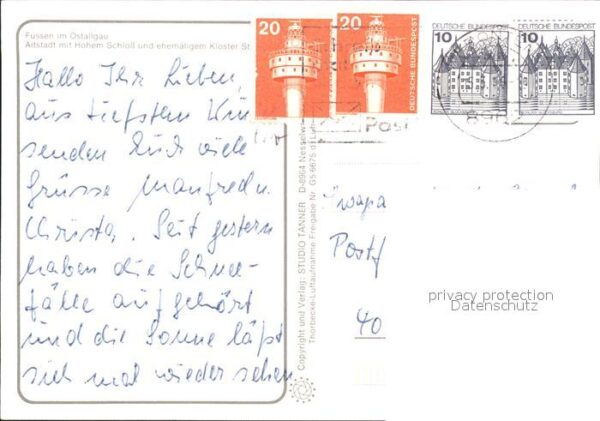 Füssen im Ostallgäu
Altstadt mit Hohem Schloß und ehemaligem Kloster St.
Hallo Ihr Lieben,
aus tiefsten Win
senden Euch viele
Grüsse Manfred u.
Christa. Seit gestern
haben die Schnee-
fälle aufgehört
und die Sonne läßt
sich mal wieder sehen
Copyright und Verlag: STUDIO TANNER D-8964 Nesselw
Thorbecke-Luftaufnahme Freigabe Nr.
20
DEUTSCHE BUNDESPOST
20
DEUTSCHE BUNDESPOST
DEUTSCHE BUNDESPOST
10
DEUTSCHE BUNDESPOST
10
Post
Postf
40
privacy protection
Datenschutz